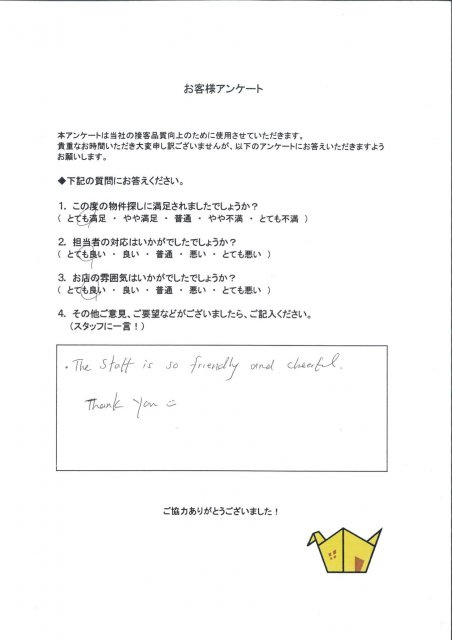 お客様アンケート
本アンケートは当社の接客品質向上のために使用させていただきます。
貴重なお時間いただき大変申し訳ございませんが、以下のアンケートにお答えいただきますよう
お願いします。
◆下記の質問にお答えください。
1. この度の物件探しに満足されましたでしょうか？
（ とても満足 ・ やや満足 ・ 普通 ・ やや不満 ・ とても不満 ）
2. 担当者の対応はいかがでしたでしょうか？
（ とても良い ・ 良い ・ 普通 ・ 悪い ・ とても悪い ）
3. お店の雰囲気はいかがでしたでしょうか？
（ とても良い ・ 良い ・ 普通 ・ 悪い ・ とても悪い ）
4. その他ご意見、ご要望などがございましたら、ご記入ください。
（スタッフに一言！）
・The Staff is so friendly and cheerful.
Thank you
ご協力ありがとうございました！